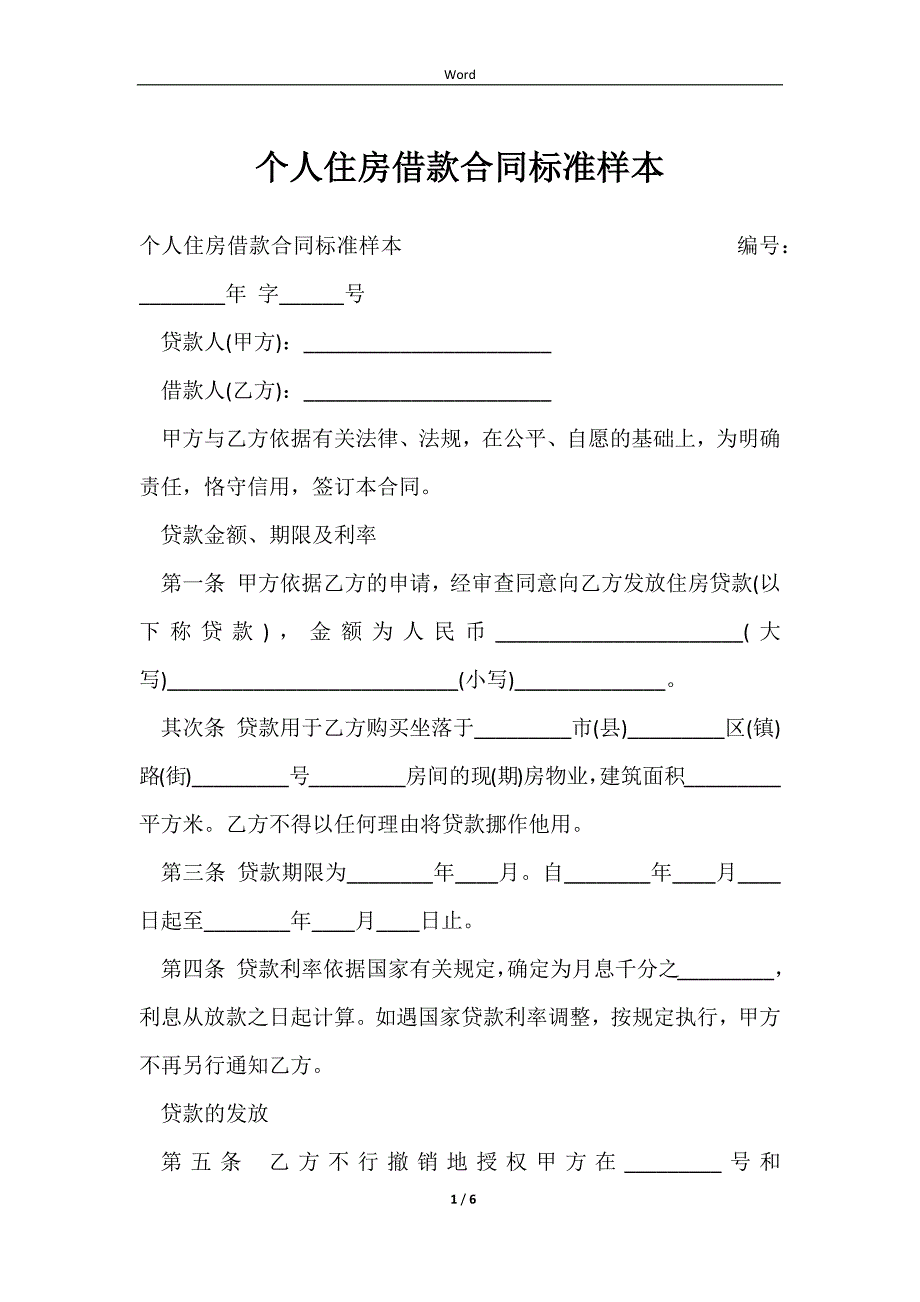 Word
个人住房借款合同标准样本
个人住房借款合同标准样本 编号：
________年 字______号
贷款人(甲方)：_______________________
借款人(乙方)：_______________________
甲方与乙方依据有关法律、法规，在公平、自愿的基础上，为明确
责任，恪守信用，签订本合同。
贷款金额、期限及利率
第一条 甲方依据乙方的申请，经审查同意向乙方发放住房贷款(以
下称贷款)，金额为人民币_______________________(大
写)___________________________(小写)______________。
其次条 贷款用于乙方购买坐落于_________市(县)_________区(镇)
路(街)_________号_________房间的现(期)房物业，建筑面积_________
平方米。乙方不得以任何理由将贷款挪作他用。
第三条 贷款期限为________年____月。自________年____月____
日起至________年____月____日止。
第四条 贷款利率依据国家有关规定，确定为月息千分之_________，
利息从放款之日起计算。如遇国家贷款利率调整，按规定执行，甲方
不再另行通知乙方。
贷款的发放
第五条 乙方不行撤销地授权甲方在_________号和
1 / 6